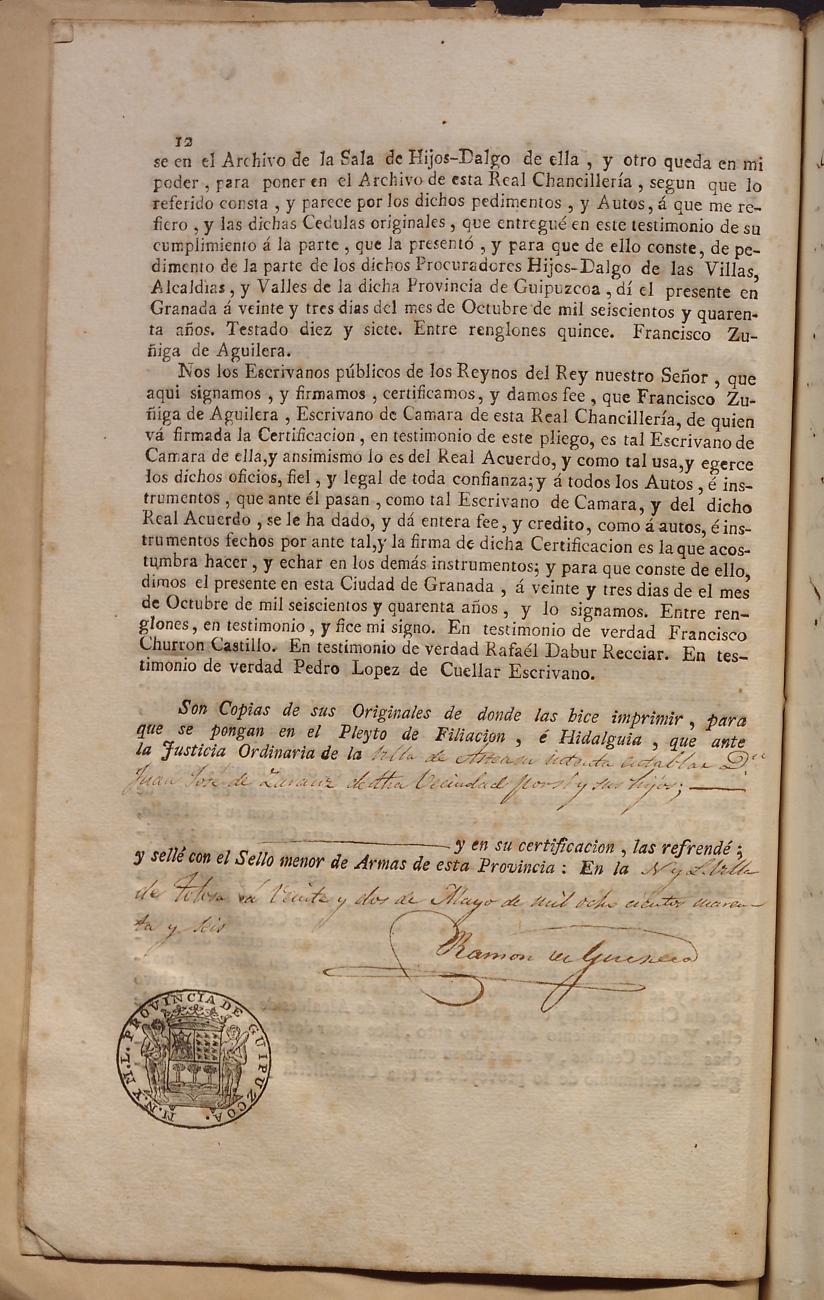 12
se en el Archivo de la Sala de Hijos-Dalgo de ella , y otro queda en mi
poder , para poner en el Archivo de esta Real Chancillería , segun que lo
referido consta , y parece por los dichos pedimentos , y Autos, á que me re-
fiero , y las dichas Cedulas originales , que entregué en este testimonio de su
cumplimiento á la parte , que la presentó , y para que de ello conste, de pe-
dimento de la parte de los dichos Procuradores Hijos-Dalgo de las Villas,
Alcaldias , y Valles de la dicha Provincia de Guipuzcoa , dí el presente en
Granada á veinte y tres dias del mes de Octubre de mil seiscientos y quaren-
ta años. Testado diez y siete. Entre renglones quince. Francisco Zu-
ñiga de Aguilera.
Nos los Escrivanos públicos de los Reynos del Rey nuestro Señor , que
aqui signamos , y firmamos , certificamos, y damos fee , que Francisco Zu-
ñiga de Aguilera , Escrivano de Camara de esta Real Chancillería, de quien
vá firmada la Certificacion , en testimonio de este pliego, es tal Escrivano de
Camara de ella,y ansimismo lo es del Real Acuerdo, y como tal usa,y egerce
los dichos oficios, fiel , y legal de toda confianza; y á todos los Autos , é ins-
trumentos , que ante él pasan , como tal Escrivano de Camara, y del dicho
Real Acuerdo , se le ha dado, y dá entera fee, y credito, como á autos, é ins-
trumentos fechos por ante tal,y la firma de dicha Certificacion es la que acos-
tumbra hacer , y echar en los demás instrumentos; y para que conste de ello,
dimos el presente en esta Ciudad de Granada , á veinte y tres dias de el mes
de Octubre de mil seiscientos y quarenta años , y lo signamos. Entre ren-
glones, en testimonio , y fice mi signo. En testimonio de verdad Francisco
Churron Castillo. En testimonio de verdad Rafaél Dabur Recciar. En tes-
timonio de verdad Pedro Lopez de Cuellar Escrivano.
Son Copias de sus Originales de donde las hice imprimir , para
que se pongan en el Pleyto de Filiacion , é Hidalguia , que ante
la Justicia Ordinaria de la Villa de intenta entablar Dn
Juan José de Zarauz de dha Vecindad por si y sus hijos;
y en su certificacion , las refrendé ;
y sellé con el Sello menor de Armas de esta Provincia : En la N y L. Villa
de Tolosa á Veinte y dos de Mayo de mil ocho cientos
ta y seis
Ramon de
M.N.Y M.L. PROVINCIA DE GUIPUZCOA.